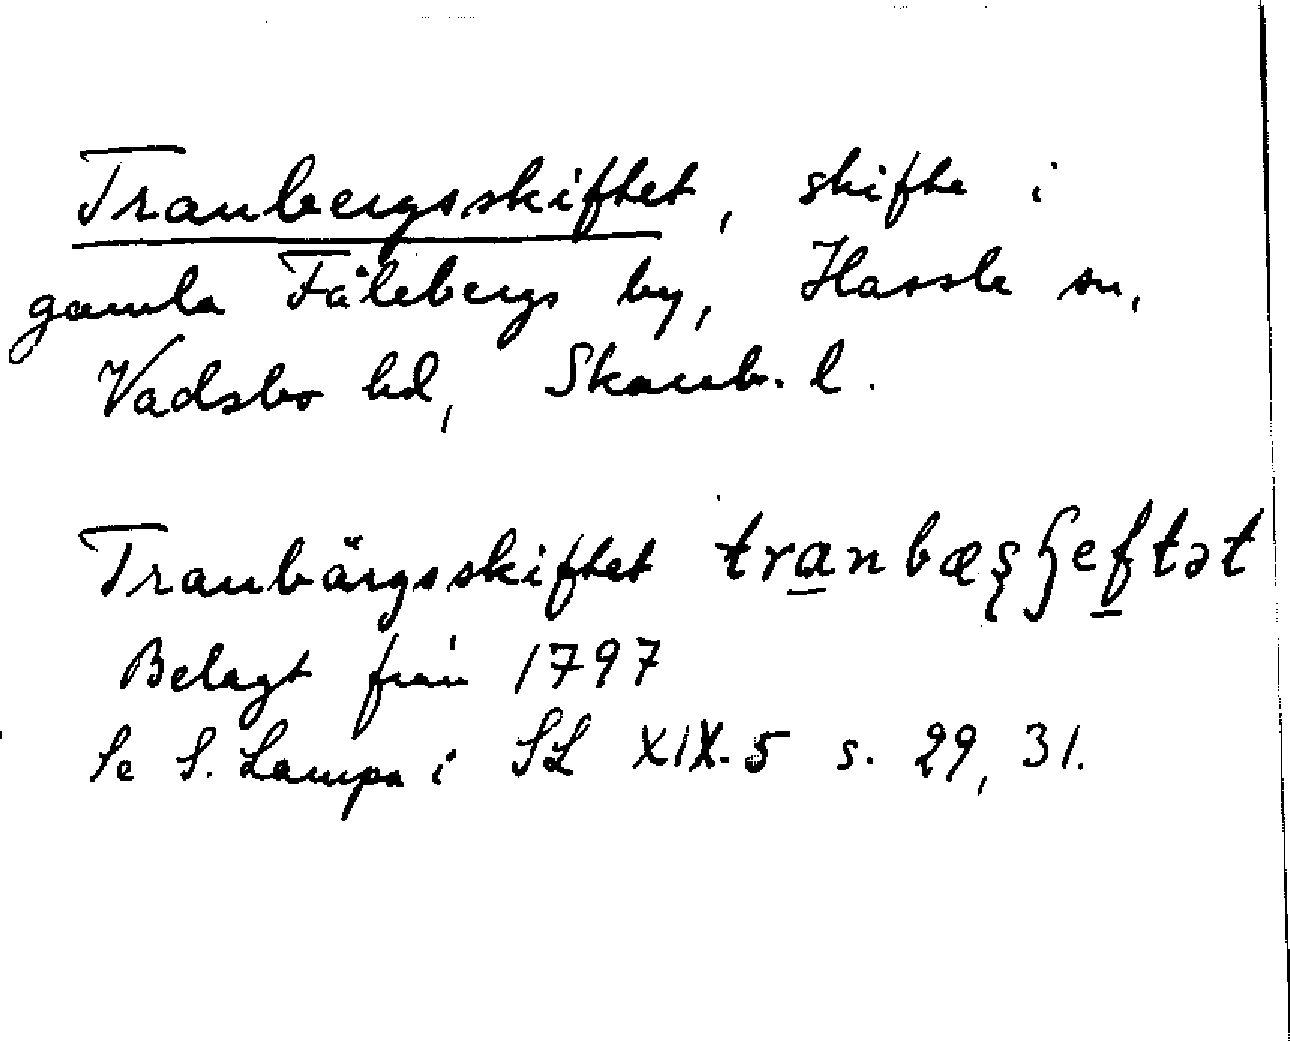 Tranbergsskiftet, skifte i
gamla Fålebergs by, Hassle sn,
Vadsbo hd, Skarab. l.
Tranbärgsskiftet tranbæʂɧeftət
Belagt från 1797
Se S. Lampa i SL XIX.5 s. 29, 31.